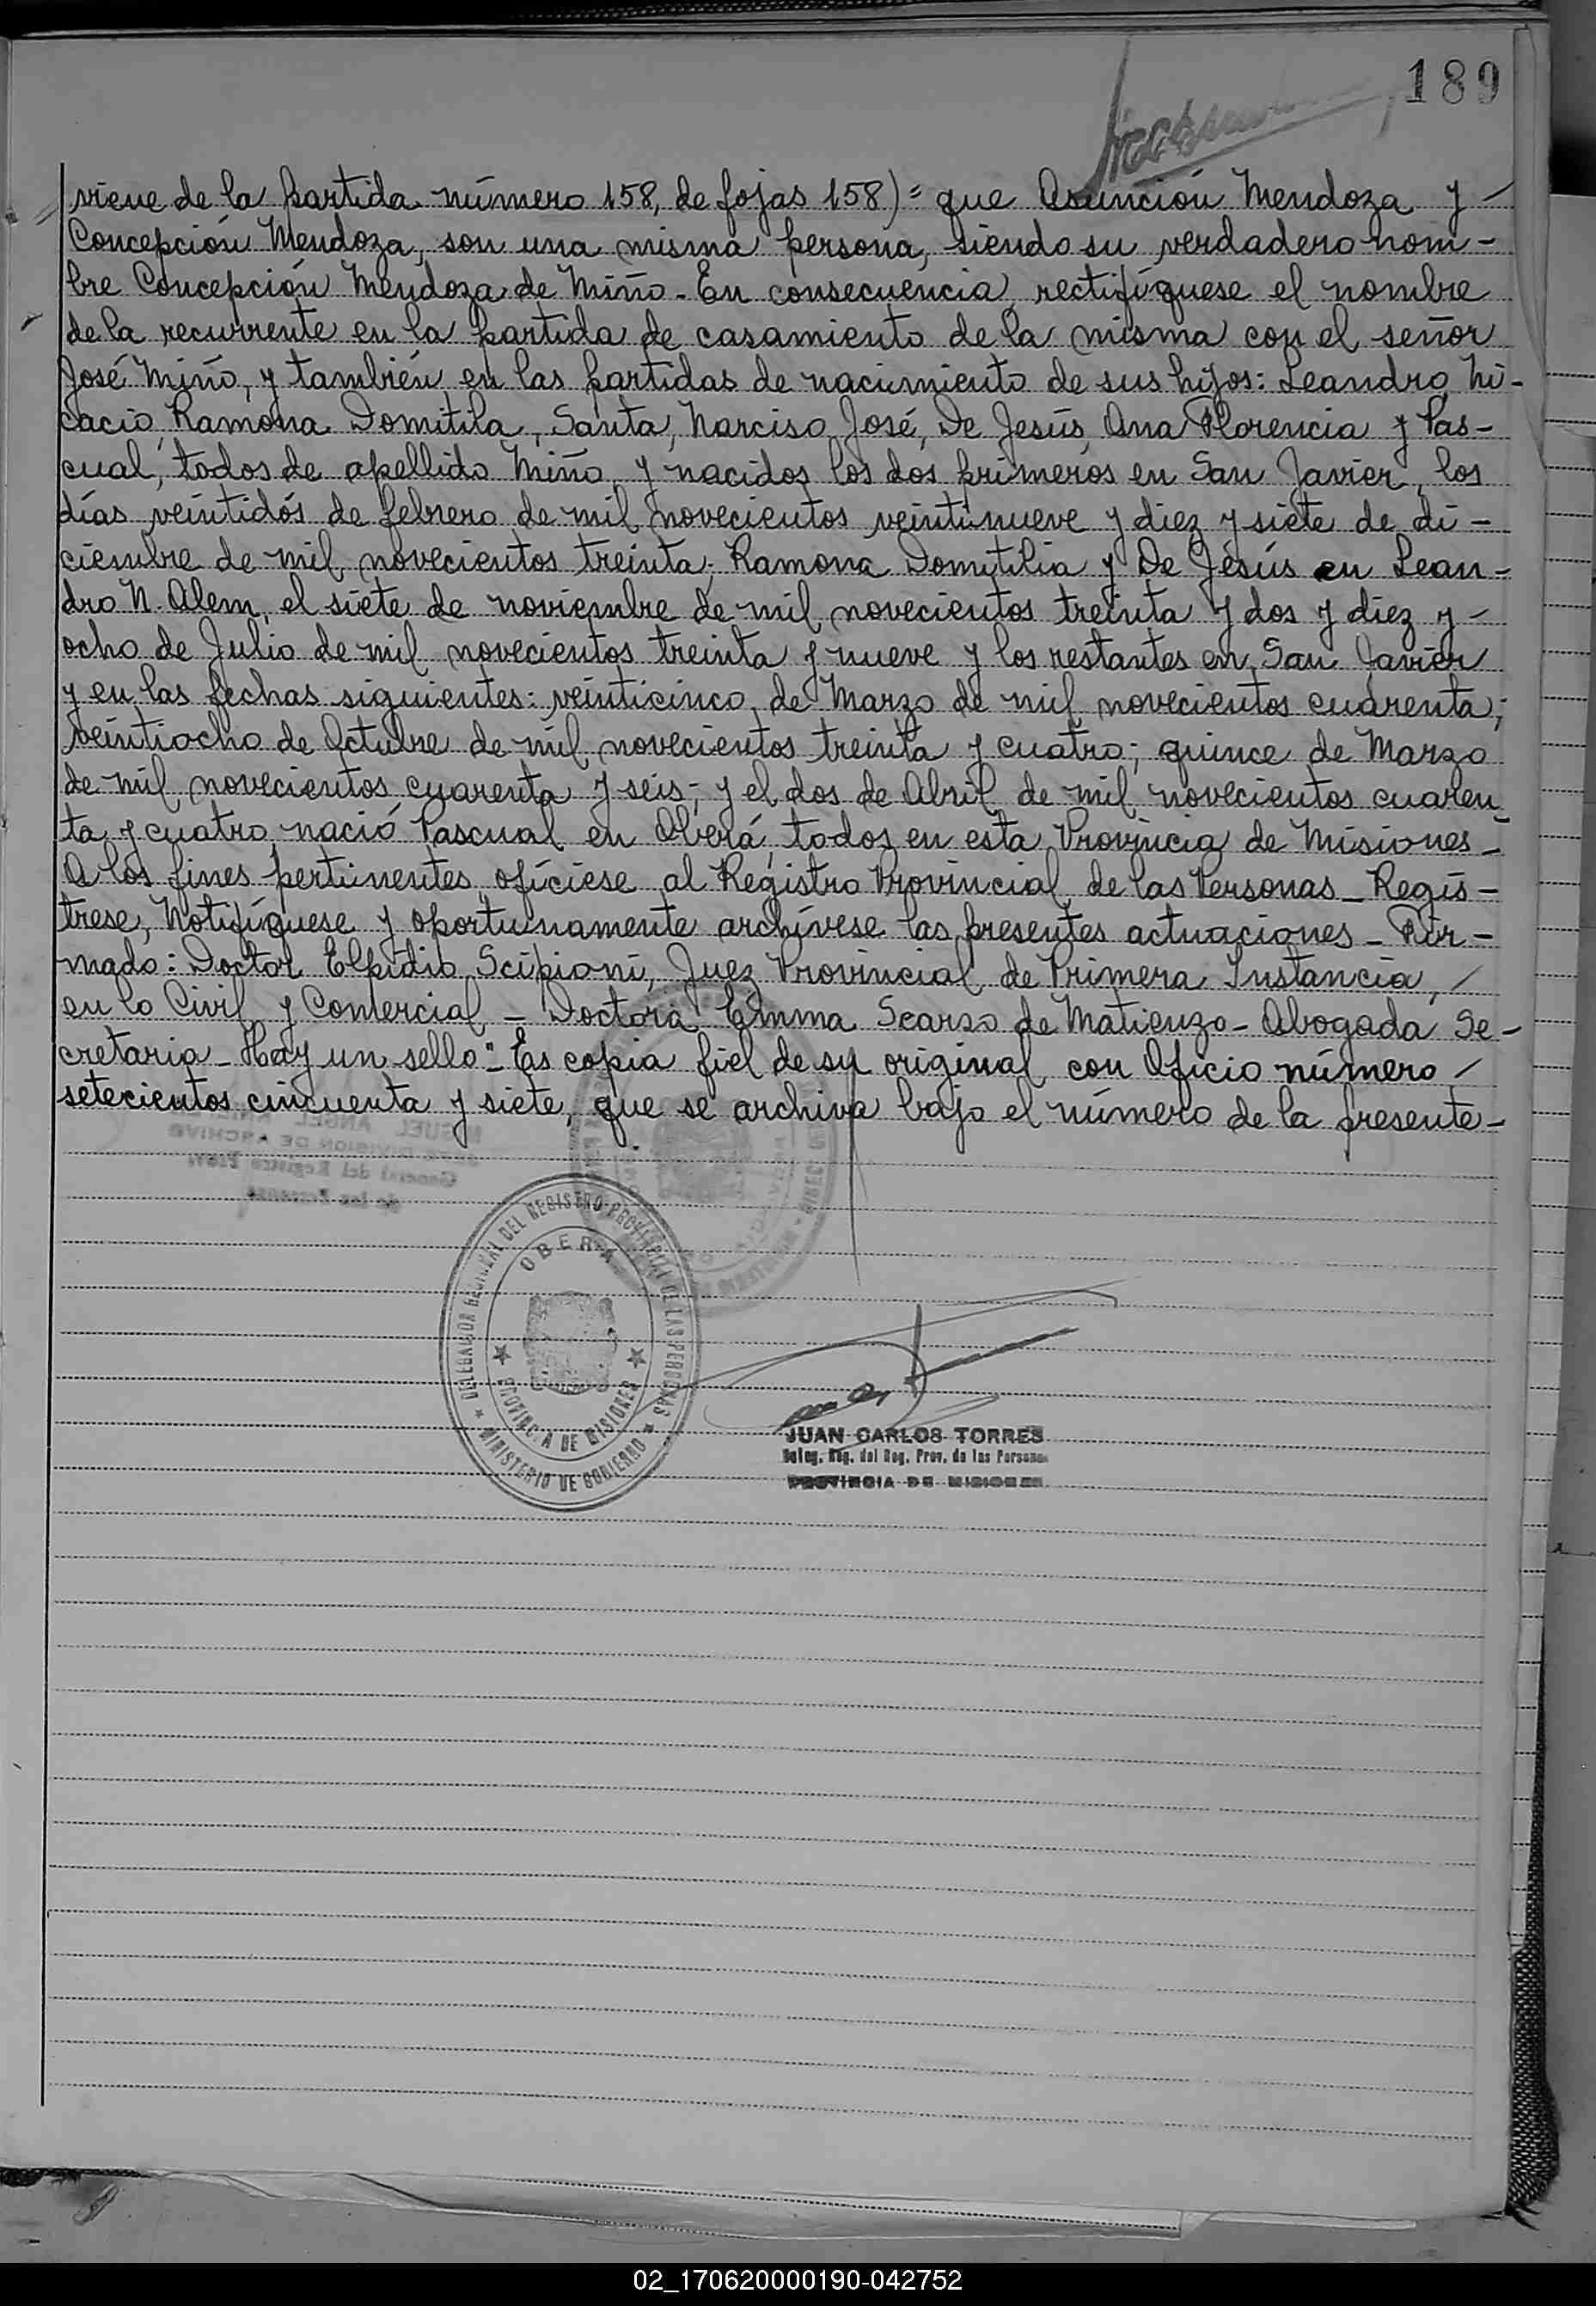 189
viene de la partida número 158, de fojas 158)= que Asunción Mendoza y -
Concepción Mendoza, son una misma persona, siendo su verdadero nom-
bre Concepción Mendoza de Miño_ En consecuencia, rectifíquese el nombre
de la recurrente en la partida de casamiento de la misma con el señor
José Miño, y también en las partidas de nacimiento de sus hijos: Leandro, Ni-
cacio, Ramona Domitila, Santa, Narciso José, De Jesús, Ana Florencia y Pas-
cual, todos de apellido Miño, y nacidos los dos primeros en San Javier, los
días veintidós de febrero de mil novecientos veintinueve y diez y siete de di-
ciembre de mil novecientos treinta; Ramona Domitilia y De Jesús en Lean-
dro N. Alem, el siete de noviembre de mil novecientos treinta y dos y diez y -
ocho de Julio de mil novecientos treinta y nueve y los restantes en San Javier
y en las fechas siguientes: veinticinco de Marzo de mil novecientos cuarenta;
veintiocho de Octubre de mil novecientos treinta y cuatro; quince de Marzo
de mil novecientos cuarenta y seis; y el dos de Abril de mil novecientos cuaren
ta y cuatro, nació Pascual en Oberá, todos en esta Provincia de Misiones_
A los fines pertinentes, ofíciese al Registro Provincial de las Personas_ Regís-
trese, Notifíquese y oportunamente archívese las presentes actuaciones_ Fir-
mado: Doctor Elpidio Scipioni, Juez Provincial de Primera Instancia, /
en lo Civil y Comercial _ Doctora Emma Scarso de Matienzo_ Abogada Se-
cretaria_ Hay un sello"_ Es copia fiel de su original con Oficio número /
setecientos cincuenta y siete, que se archiva bajo el número de la presente_
DELEGACION REGIONAL DEL REGISTRO PROVINCIAL DE LAS PERSONAS
OBERA
PROVINCIA DE MISIONES
MINISTERIO DE GOBIERNO
JUAN CARLOS TORRES
Deleg. Reg. del Reg. Prov. de las Personas
PROVINCIA DE MISIONES
02_170620000190-042752